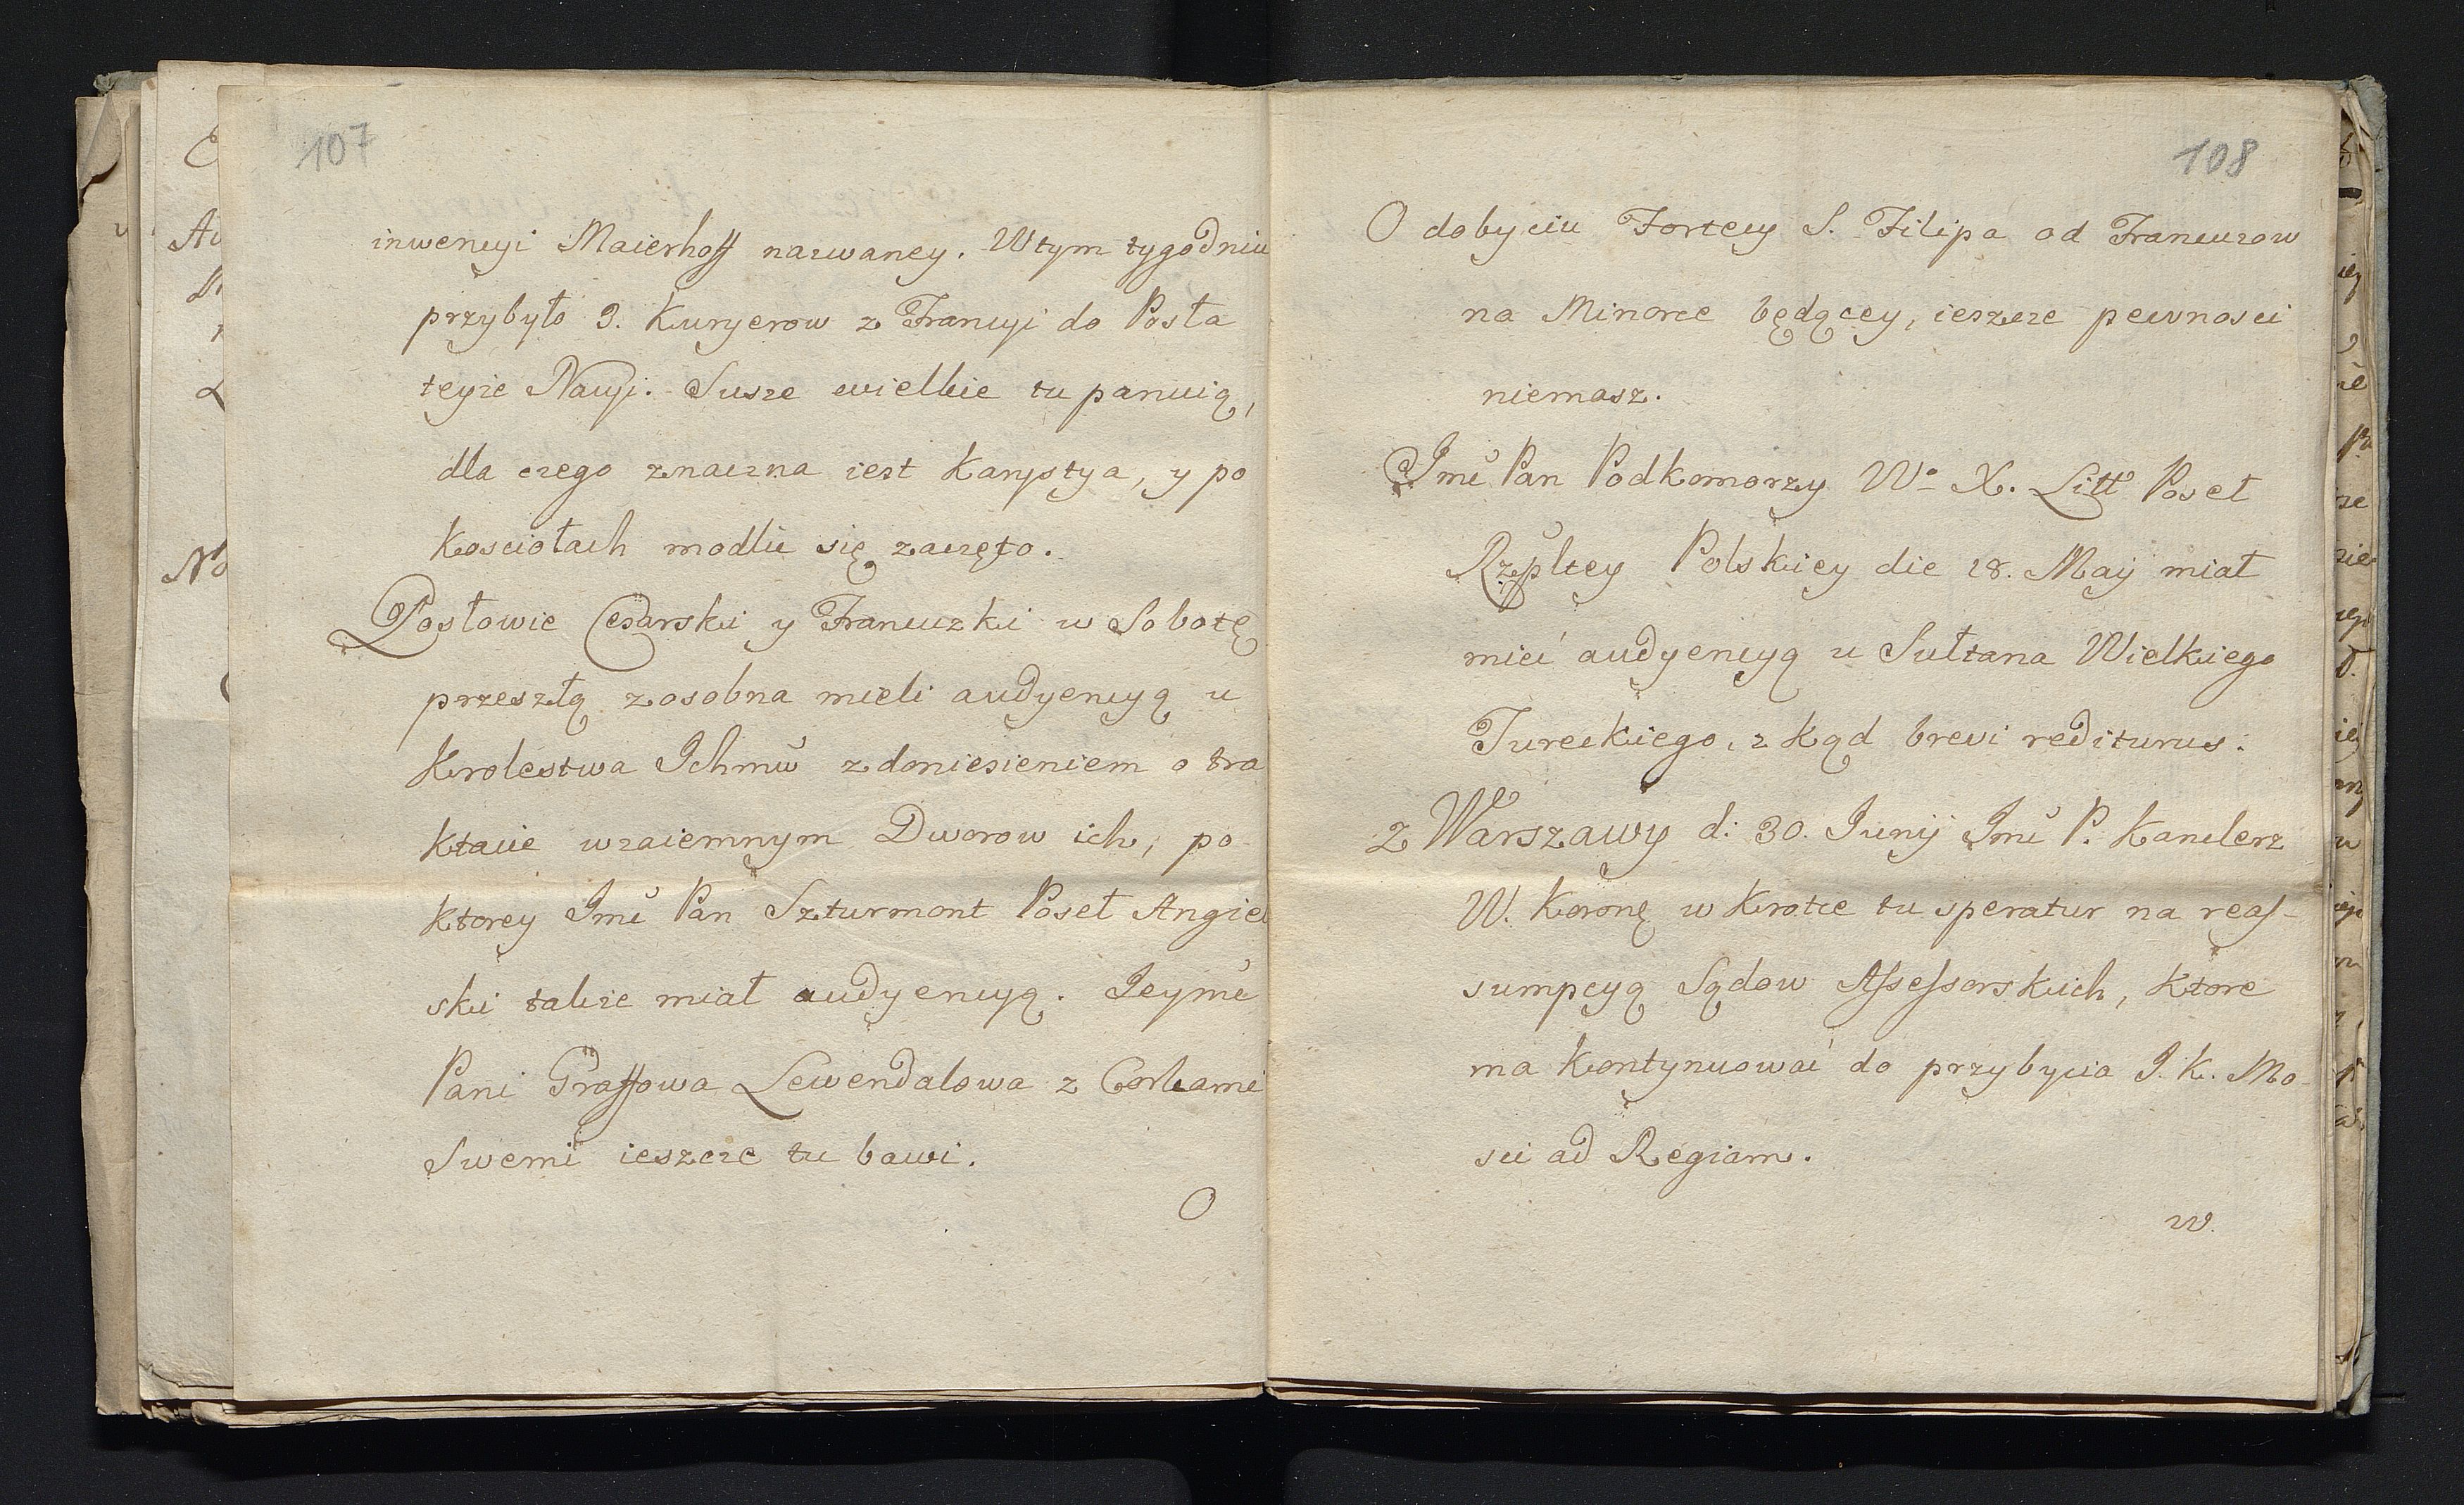 107
inwencyi Maierhoff nazwaney. W tym tygodniu
przybyło 3. Kuryerow z Francyi do Posła
teyże Nacyi. Susze wielkie tu panuią,
dla czego znaczna iest Karystya, y po
Kosciołach modlic się zaczęto.
Posłowie Cesarski y Francuzki w Sobotę
przeszłą zosobna mieli audyencyą u
Krolestwa Ichmw z doniesieniem o tra
ktacie wzaiemnym Dworow ich, po
ktorey Jmć Pan Szturmont Poseł Angiel
ski także miał audyencyą. Jeymć
Pani Graffowa Lewendalowa z Corkami
Swemi ieszcze tu bawi.
O
108
O dobyciu Fortecy S. Filipa od Francuzow
na Minorce będącey, ieszcze pewnosci
niemasz.
Jmć Pan Podkomorzy Wo X. Litt Poseł
Rzpltey Polskiey die 18. Maij miał
mieć audyencyą u Sułtana Wielkiego
Tureckiego, z kąd brevi rediturus.
Z Warszawy d: 30. Junij Jmć P. Kanclerz
W. Koronę w Krotce tu speratur na reas-
sumpcyą Sądow Assessorskich, ktore
ma kontynuować do przybycia J. K. Mo-
sci ad Regiam.
w.